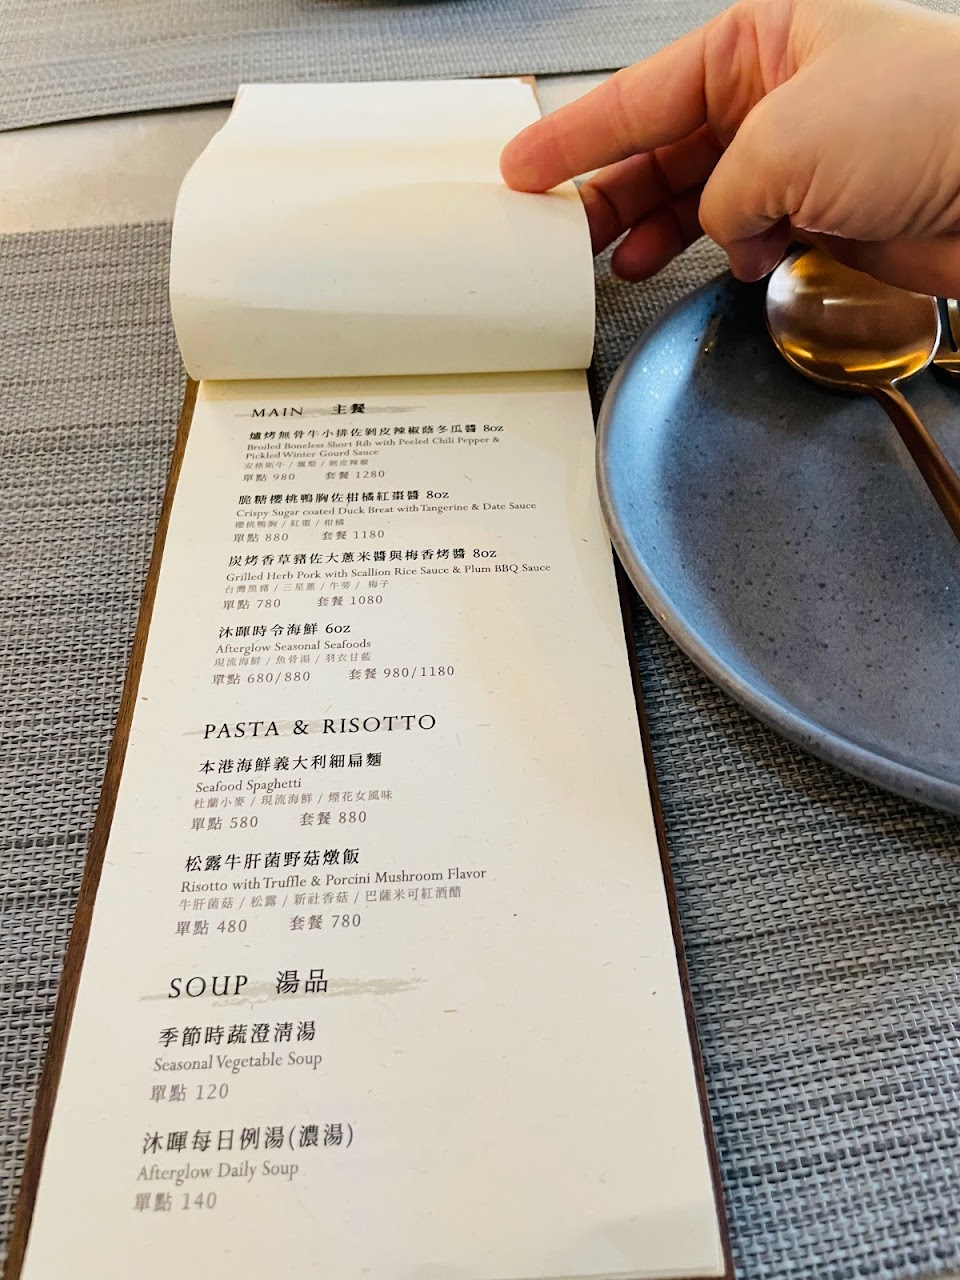 MAIN 主餐
爐烤無骨牛小排佐剝皮辣椒蔭冬瓜醬 8oz
Broiled Boneless Short Rib with Peeled Chili Pepper &
Pickled Winter Gourd Sauce
安格斯牛 / 鳳梨 / 剝皮辣椒
單點 980 套餐 1280
脆糖櫻桃鴨胸佐柑橘紅棗醬 8oz
Crispy Sugar coated Duck Breat with Tangerine & Date Sauce
櫻桃鴨胸 / 紅棗 / 柑橘
單點 880 套餐 1180
炭烤香草豬佐大蔥米醬與梅香烤醬 8oz
Grilled Herb Pork with Scallion Rice Sauce & Plum BBQ Sauce
台灣黑豬 / 三星蔥 / 牛蒡 / 梅子
單點 780 套餐 1080
沐暉時令海鮮 6oz
Afterglow Seasonal Seafoods
現流海鮮 / 魚骨湯 / 羽衣甘藍
單點 680/880 套餐 980/1180
PASTA & RISOTTO
本港海鮮義大利細扁麵
Seafood Spaghetti
杜蘭小麥 / 現流海鮮 / 煙花女風味
單點 580 套餐 880
松露牛肝菌野菇燉飯
Risotto with Truffle & Porcini Mushroom Flavor
牛肝菌菇 / 松露 / 新社香菇 / 巴薩米可紅酒醋
單點 480 套餐 780
SOUP 湯品
季節時蔬澄清湯
Seasonal Vegetable Soup
單點 120
沐暉每日例湯(濃湯)
Afterglow Daily Soup
單點 140